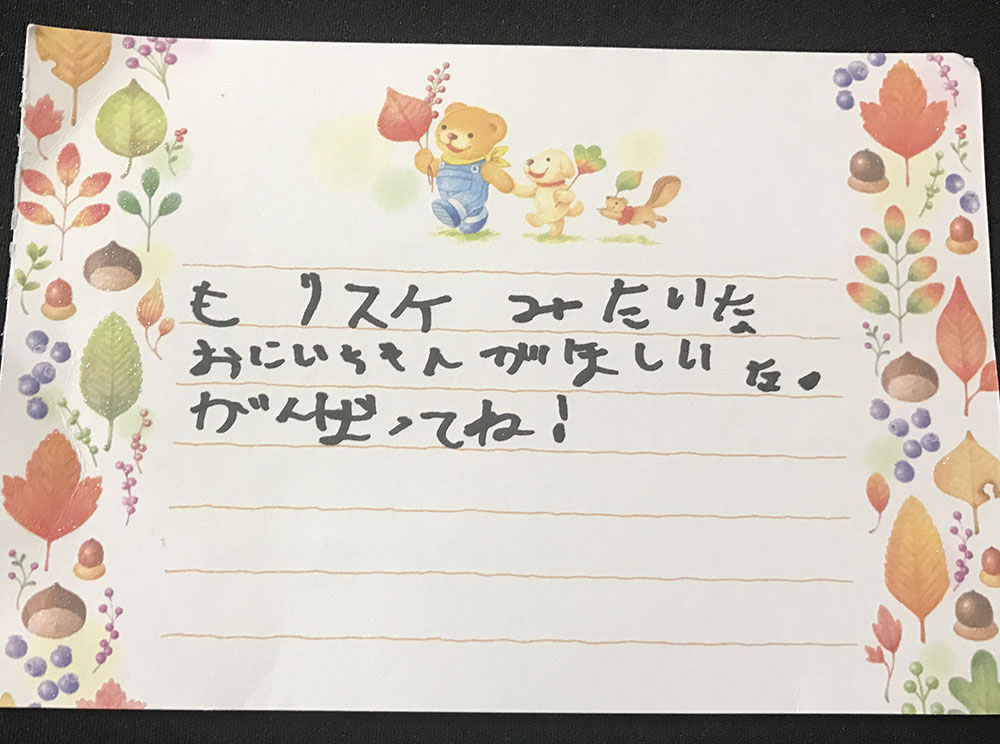 もリスケ みたいな
おにいちゃんがほしいな。
がんばってね!